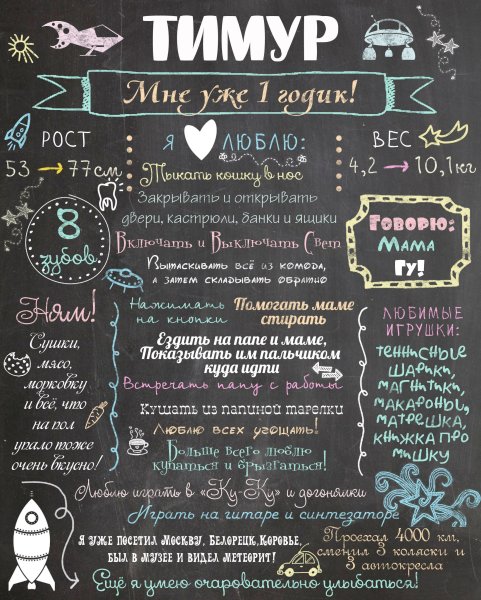 ТИМУР
Мне уже 1 годик!
РОСТ
53 → 77см
Я ЛЮБЛЮ:
ВЕС
4,2 → 10,1кг
Тыкать кошку в нос
Закрывать и открывать
двери, кастрюли, банки и ящики
Включать и Выключать Свет
Вытаскивать всё из комода,
а затем складывать обратно
8
зубов
Говорю:
Мама
Гу!
Ням!
Сушки,
мясо,
морковку
и всё, что
на пол
упало тоже
очень вкусно!
Нажимать
на кнопки
Помогать маме
стирать
Ездить на папе и маме,
Показывать им пальчиком
куда идти
Встречать папу с работы
Кушать из папиной тарелки
Люблю всех угощать!
Больше всего люблю
купаться и брызгаться!
ЛЮБИМЫЕ
ИГРУШКИ:
теннисные
шарики,
магнитики,
макароны,
матрешка,
книжка про
мышку
Люблю играть в «Ку-Ку» и догонялки
Играть на гитаре и синтезаторе
Я уже посетил Москву, Белорецк, Коровье,
был в музее и видел метеорит!
Проехал 4000 км,
сменил 3 коляски и
3 автокресла
Ещё я умею очаровательно улыбаться!